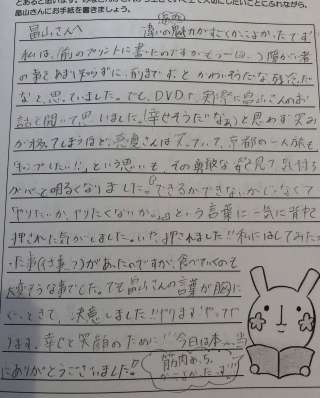 とあると思います。
畠山さんにお手紙を書きましょう。
畠山さんへ
違いの魅力がすごくかっこよかったです
私は、前のプリントに書いたのですがもう一回、障がい者
の事をあまり知らずに、前までずっとかわいそうだな残念だ
なと、思っていました。でも、DVDや、実際に畠山さんのお
話を聞いて、思いました。「幸せそうだなぁ」と思わず笑み
がこぼれてしまうほど、
さんは笑っていて、京都の一人旅も
チャレンジしたい!!という思いも、その勇敢な姿を見て気持ち
がぐんと明るくなりました。「できるかできないかじゃなくて
やりたいか、やりたくないか。」という言葉に一気に背中を
押された気がしました。いや、押されました!!私にはしてみたか
った事(仕事)があったのですが、食べていくのも
大変そうな事でした。でも畠山さんの言葉が胸に
ぐっときて、決意しました!!やります!やって
ります。幸せと笑顔のために!!今日は本当
にありがとうございました!!
筋肉